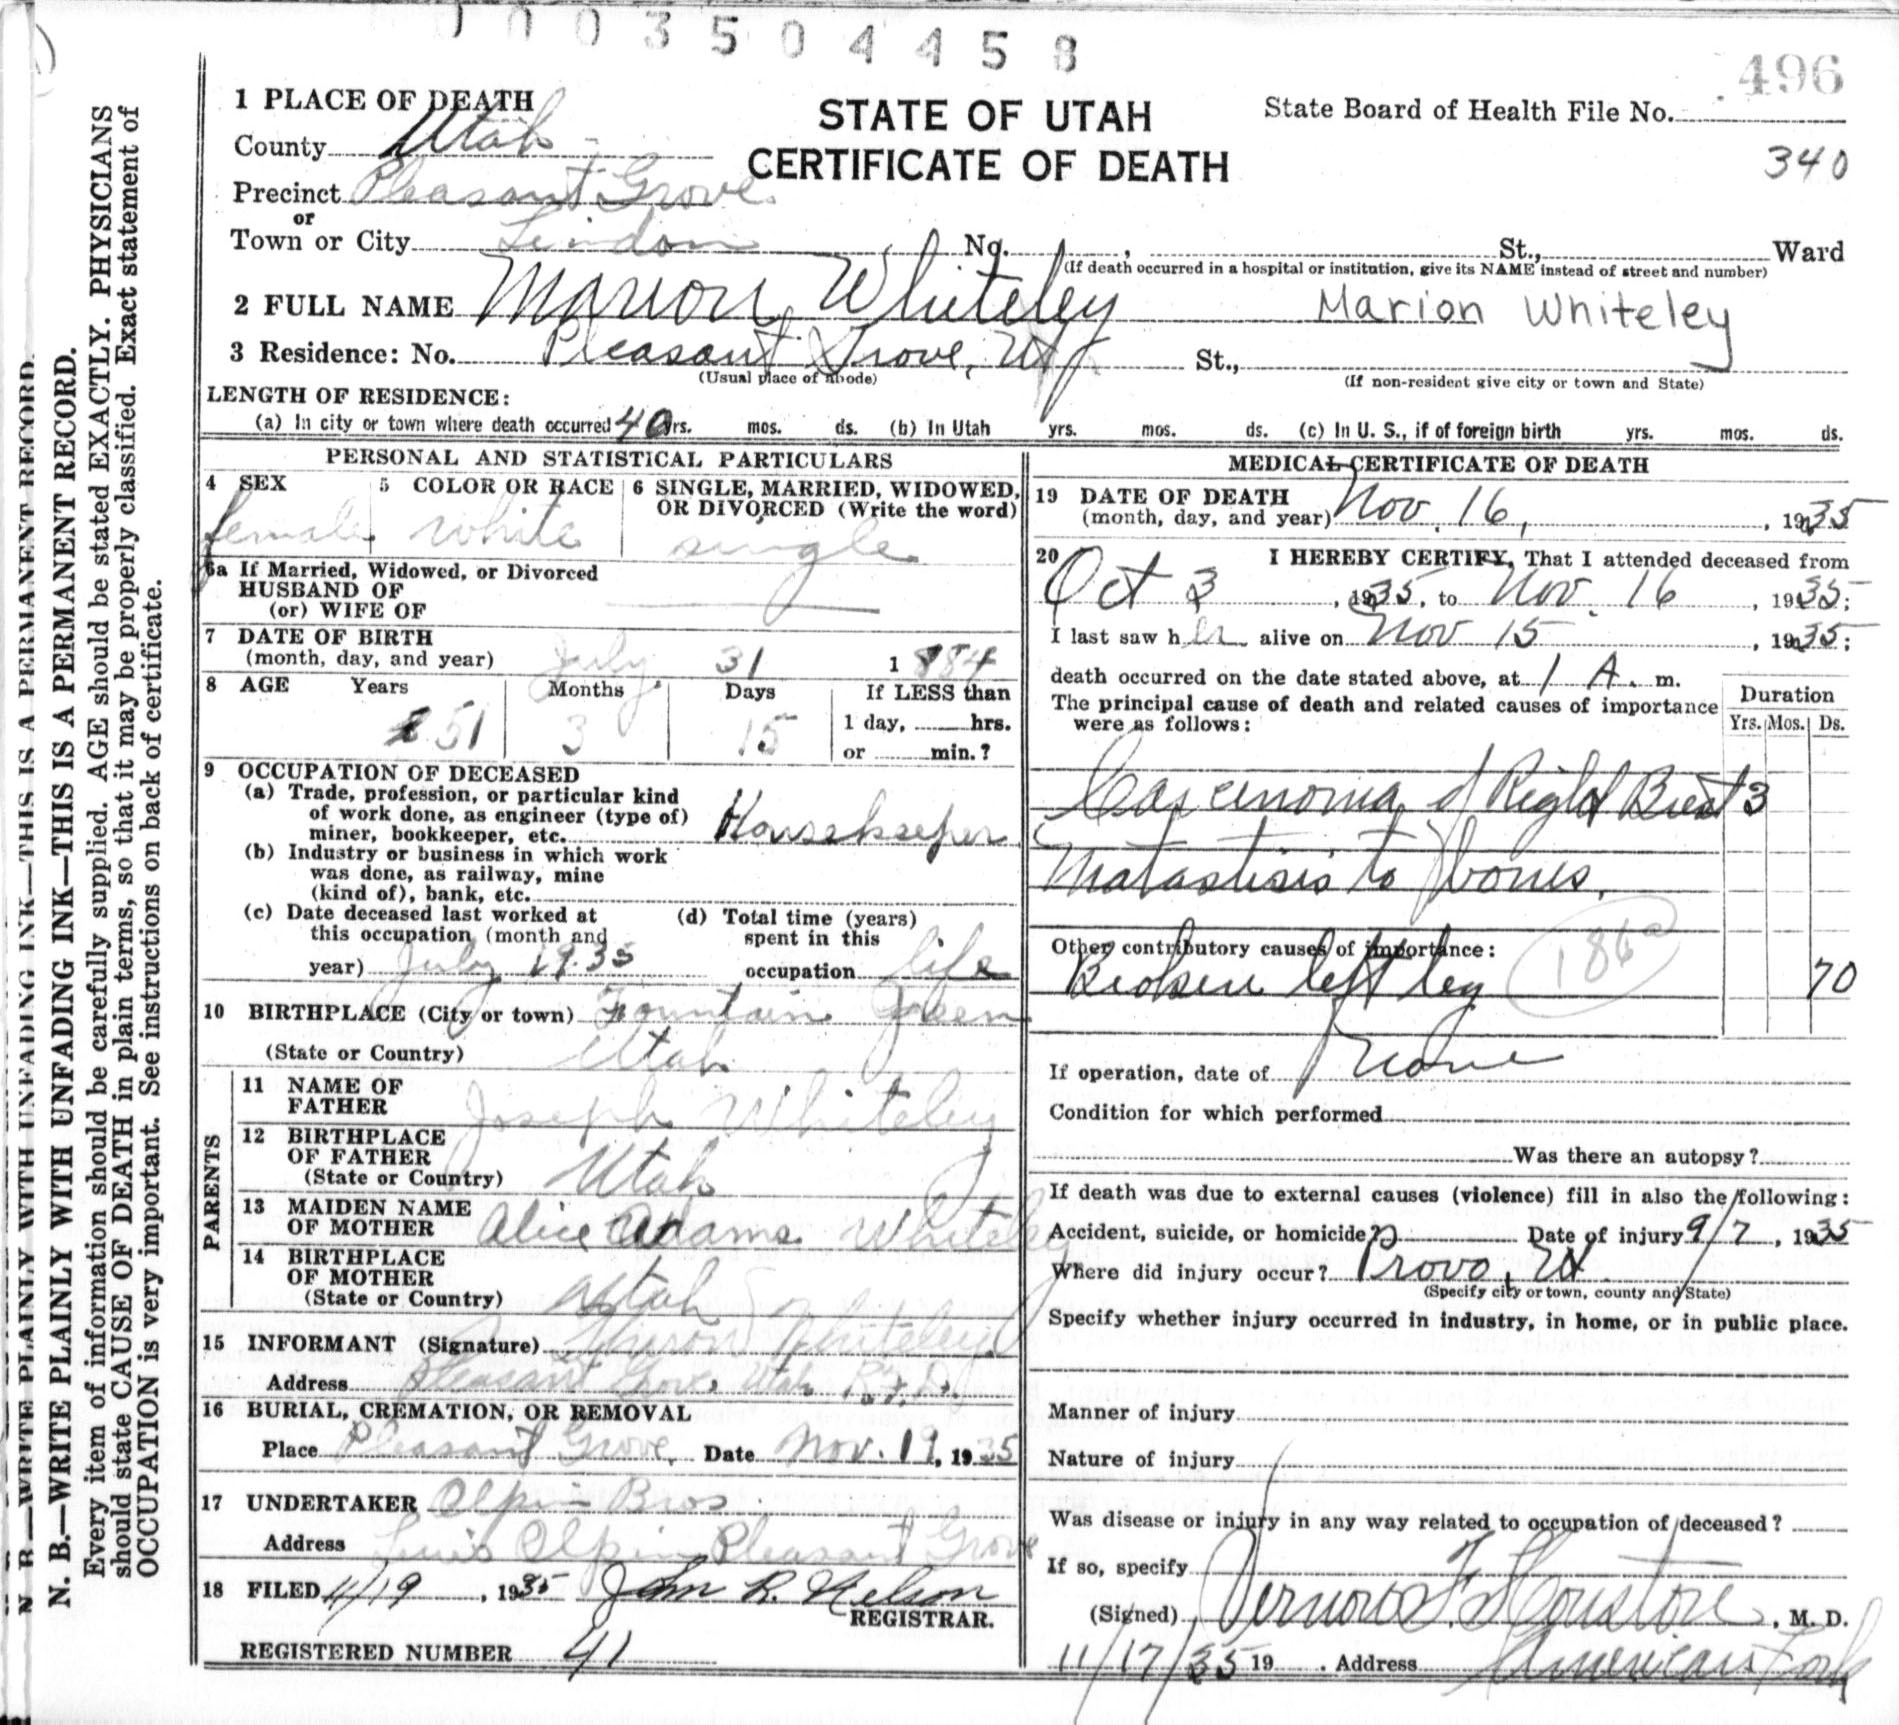 0003504458
496
1 PLACE OF DEATH
STATE OF UTAH
CERTIFICATE OF DEATH
State Board of Health File No.
340
County Utah
Precinct Pleasant Grove
or
Town or City Lindon No. , St., Ward
(If death occurred in a hospital or institution, give its NAME instead of street and number)
2 FULL NAME Marion Whiteley Marion Whiteley
3 Residence: No. Pleasant Grove, Ut St.,
(Usual place of abode) (If non-resident give city or town and State)
LENGTH OF RESIDENCE:
(a) In city or town where death occurred 40 yrs. mos. ds. (b) In Utah yrs. mos. ds. (c) In U. S., if of foreign birth yrs. mos. ds.
PERSONAL AND STATISTICAL PARTICULARS
4 SEX 5 COLOR OR RACE 6 SINGLE, MARRIED, WIDOWED,
OR DIVORCED (Write the word)
female white single
6a If Married, Widowed, or Divorced
HUSBAND OF
(or) WIFE OF
7 DATE OF BIRTH
(month, day, and year) July 31 1884
8 AGE Years Months Days If LESS than
51 3 15 1 day, hrs.
or min.?
9 OCCUPATION OF DECEASED
(a) Trade, profession, or particular kind
of work done, as engineer (type of)
miner, bookkeeper, etc. Housekeeper
(b) Industry or business in which work
was done, as railway, mine
(kind of), bank, etc.
(c) Date deceased last worked at (d) Total time (years)
this occupation (month and spent in this
year) July 1935 occupation life
10 BIRTHPLACE (City or town) Fountain Green
(State or Country) Utah
PARENTS
11 NAME OF
FATHER Joseph Whiteley
12 BIRTHPLACE
OF FATHER
(State or Country) Utah
13 MAIDEN NAME
OF MOTHER Alice Adams Whiteley
14 BIRTHPLACE
OF MOTHER
(State or Country) Utah
15 INFORMANT (Signature) Whiteley
Address Pleasant Grove, Utah R.F.D.
16 BURIAL, CREMATION, OR REMOVAL
Place Pleasant Grove, Date Nov. 19, 1935
17 UNDERTAKER Olpin Bros
Address Olpin Pleasant Grove
18 FILED 11/19, 1935 John R. Nelson
REGISTRAR.
REGISTERED NUMBER 41
MEDICAL CERTIFICATE OF DEATH
19 DATE OF DEATH
(month, day, and year) Nov. 16, , 1935
20 I HEREBY CERTIFY, That I attended deceased from
Oct 3 , 1935, to Nov. 16 , 1935;
I last saw her alive on Nov 15 , 1935;
death occurred on the date stated above, at 1 A. m.
The principal cause of death and related causes of importance
were as follows:
Duration
Yrs. Mos. Ds.
Carcinoma of Right Breast 3
Matastisis to bones,
Other contributory causes of importance:
Broken left leg 70
186a
If operation, date of None
Condition for which performed
Was there an autopsy?
If death was due to external causes (violence) fill in also the following:
Accident, suicide, or homicide? Date of injury 9/7, 1935
Where did injury occur? Provo, Ut
(Specify city or town, county and State)
Specify whether injury occurred in industry, in home, or in public place.
Manner of injury
Nature of injury
Was disease or injury in any way related to occupation of deceased?
If so, specify
(Signed) Vernon F. Houston, M. D.
11/17/35 19 . Address American Fork
N. B.—WRITE PLAINLY WITH UNFADING INK—THIS IS A PERMANENT RECORD.
N. B.—WRITE PLAINLY WITH UNFADING INK—THIS IS A PERMANENT RECORD.
Every item of information should be carefully supplied. AGE should be stated EXACTLY. PHYSICIANS
should state CAUSE OF DEATH in plain terms, so that it may be properly classified. Exact statement of
OCCUPATION is very important. See instructions on back of certificate.